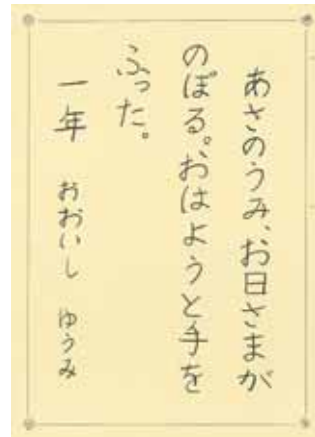 あさのうみ、お日さまが
のぼる。おはようと手を
ふった。
一年 おおいし ゆうみ